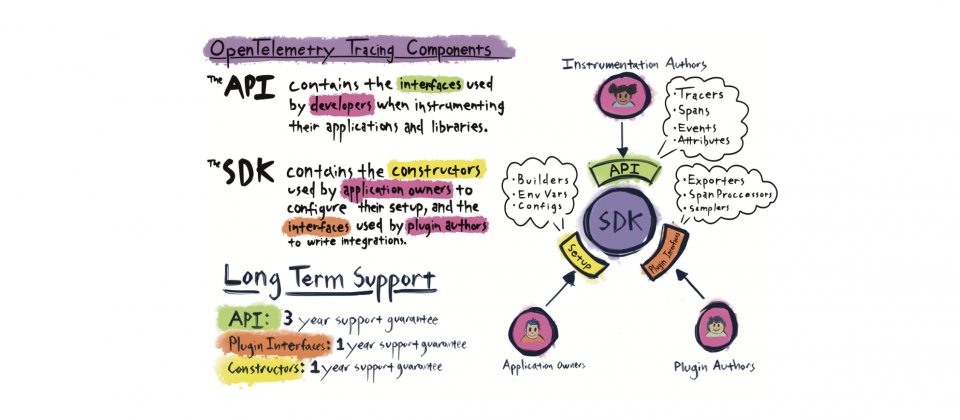 OpenTelemetry Tracing Components
The API contains the interfaces used
by developers when instrumenting
their applications and libraries.
The SDK contains the constructors
used by application owners to
configure their setup, and the
interfaces used by plugin authors
to write integrations.
Long Term Support
API: 3 year support guarantee
Plugin Interfaces: 1 year support guarantee
Constructors: 1 year support guarantee
Instrumentation Authors
• Tracers
• Spans
• Events
• Attributes
API
• Builders
• Env Vars
• Configs
• Exporters
• Span Proccessors
• Samplers
SDK
Setup
Plugin Interfaces
Application Owners
Plugin Authors